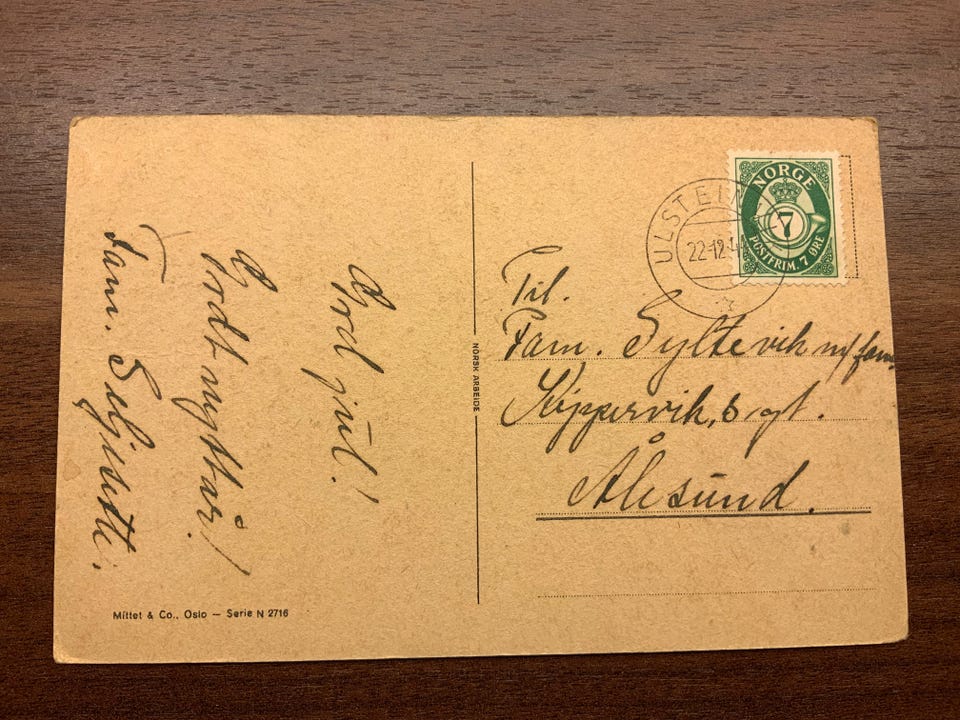 God jul!
Godt nyttår!
Fam. Seljeseth.
Mittet & Co., Oslo — Serie N 2716
NORSK ARBEIDE
ULSTEIN
22-12-4
NORGE
7
POSTFRIM. 7 ØRE
Til.
Fam. Syltevik m/fam.
Kippervik,s gt.
Ålesund.